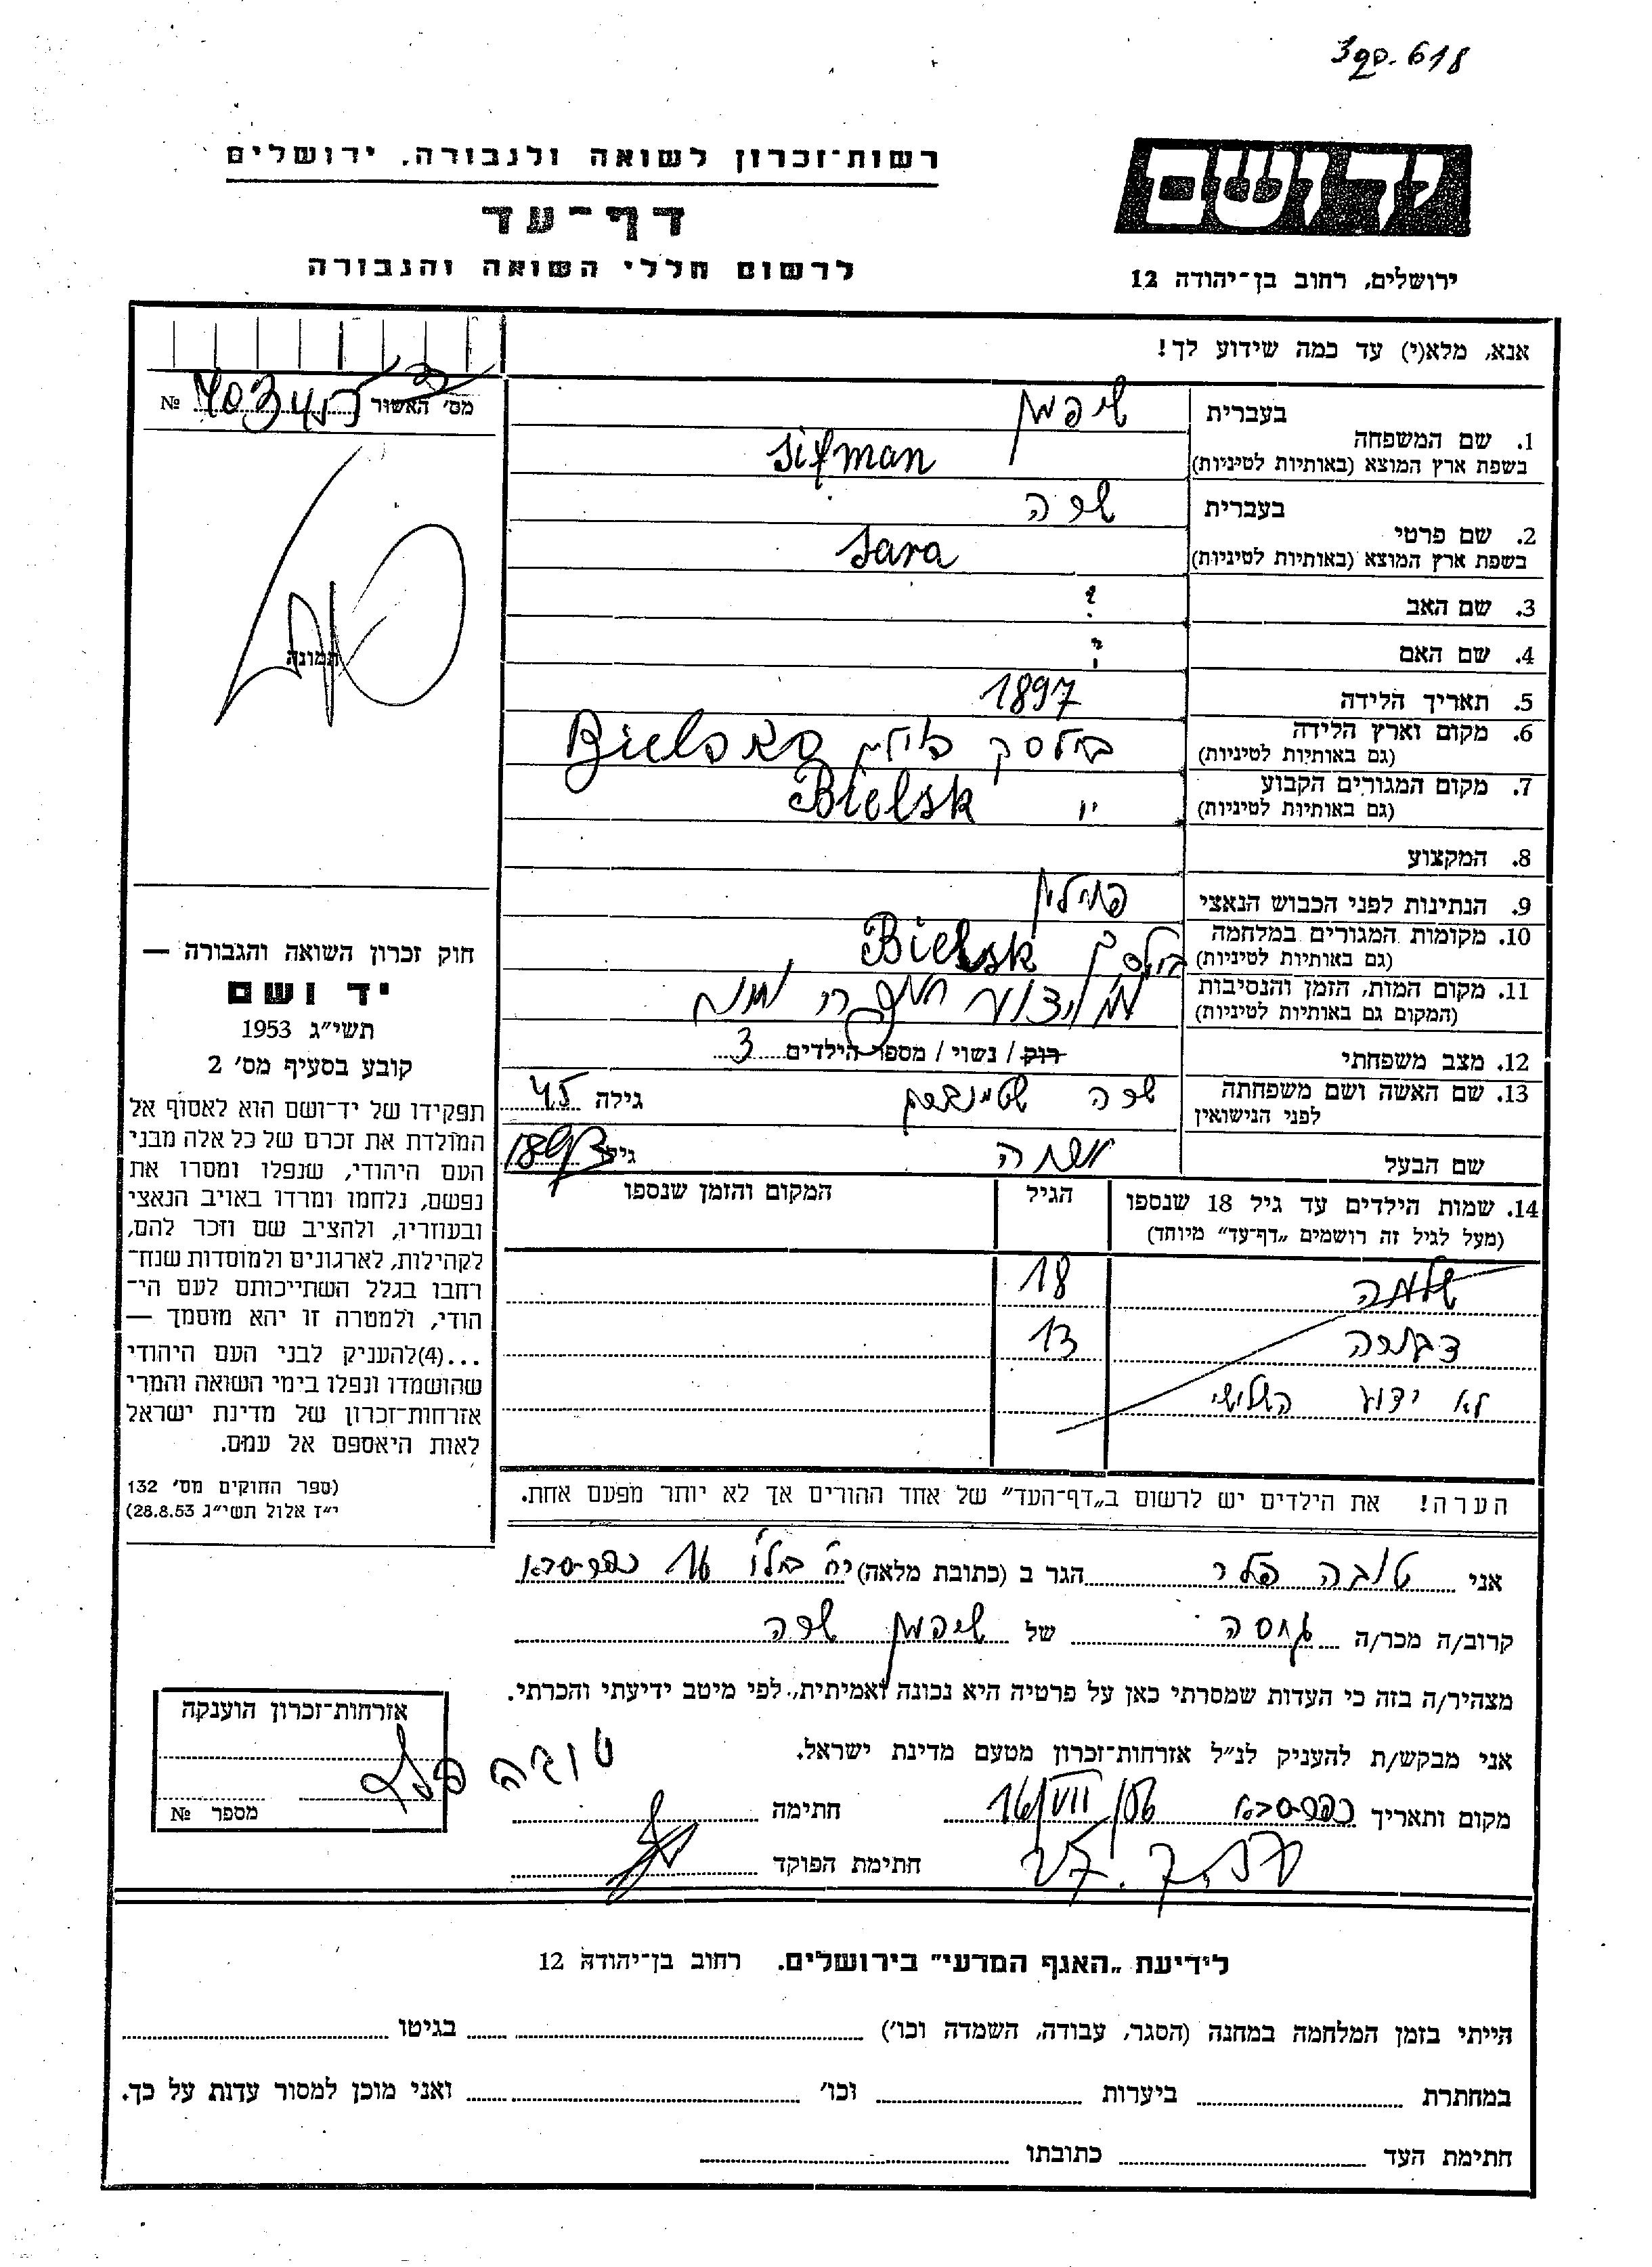 618
רשות־זכרון לשואה ולגבורה, ירושלים
יד ושם
דף־עד
לרשום חללי השואה והגבורה
ירושלים, רחוב בן־יהודה 12
אנא, מלא(י) עד כמה שידוע לך!
מס' האשור №
תמונה
1. שם המשפחה בעברית שיפמן
בשפת ארץ המוצא (באותיות לטיניות) Sifman
2. שם פרטי בעברית שרה
בשפת ארץ המוצא (באותיות לטיניות) Sara
3. שם האב ?
4. שם האם ?
5. תאריך הלידה 1897
6. מקום וארץ הלידה (גם באותיות לטיניות) בילסק
7. מקום המגורים הקבוע (גם באותיות לטיניות) Bielsk
8. המקצוע
9. הנתינות לפני הכבוש הנאצי פולין
10. מקומות המגורים במלחמה (גם באותיות לטיניות) Bielsk
11. מקום המות, הזמן והנסיבות (המקום גם באותיות לטיניות)
12. מצב משפחתי רוק / נשוי / מספר הילדים 3
13. שם האשה ושם משפחתה לפני הנישואין שרה גילה 45
שם הבעל משה גילו
14. שמות הילדים עד גיל 18 שנספו (מעל לגיל זה רושמים „דף־עד" מיוחד) הגיל המקום והזמן שנספו
שלמה 18
דבורה 13
לא ידוע השלישי
הערה! את הילדים יש לרשום ב„דף־העד" של אחד ההורים אך לא יותר מפעם אחת.
אני טובה הגר ב (כתובת מלאה) 16 כפר־סבא
קרוב/ה מכר/ה גיסה של שיפמן שרה
מצהיר/ה בזה כי העדות שמסרתי כאן על פרטיה היא נכונה ואמיתית, לפי מיטב ידיעתי והכרתי.
אני מבקש/ת להעניק לנ"ל אזרחות־זכרון מטעם מדינת ישראל.
מקום ותאריך כפר־סבא 16/VII חתימה טובה
חתימת הפוקד
חוק זכרון השואה והגבורה —
יד ושם
תשי"ג 1953
קובע בסעיף מס' 2
תפקידו של יד־ושם הוא לאסוף אל
המולדת את זכרם של כל אלה מבני
העם היהודי, שנפלו ומסרו את
נפשם, נלחמו ומרדו באויב הנאצי
ובעוזריו, ולהציב שם וזכר להם,
לקהילות, לארגונים ולמוסדות שנח־
רחבו בגלל השתייכותם לעם הי־
הודי, ולמטרה זו יהא מוסמך —
...(4)להעניק לבני העם היהודי
שהושמדו ונפלו בימי השואה והמרי
אזרחות־זכרון של מדינת ישראל
לאות היאספם אל עמם.
(ספר החוקים מס' 132
י"ז אלול תשי"ג 28.8.53)
אזרחות־זכרון הוענקה
מספר №
לידיעת „האגף המדעי" בירושלים. רחוב בן־יהודה 12
הייתי בזמן המלחמה במחנה (הסגר, עבודה, השמדה וכו') בגיטו
במחתרת ביערות וכו' ואני מוכן למסור עדות על כך.
חתימת העד כתובתו